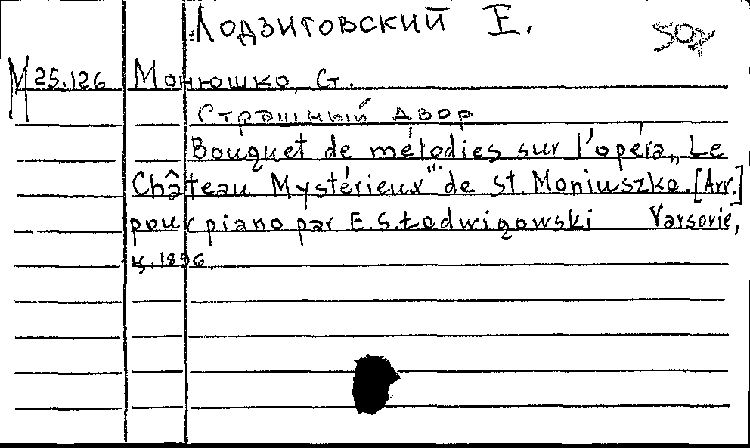 Лодзиговский Е.
М 25.126 Монюшко С.
Страшный двор
Bouquet de mélodies sur l'opéra „Le
Château Mystérieux" de St. Moniuszko. [Arr.]
pour piano par E.S. Ładwigowski Varsovie,
ц. 1896